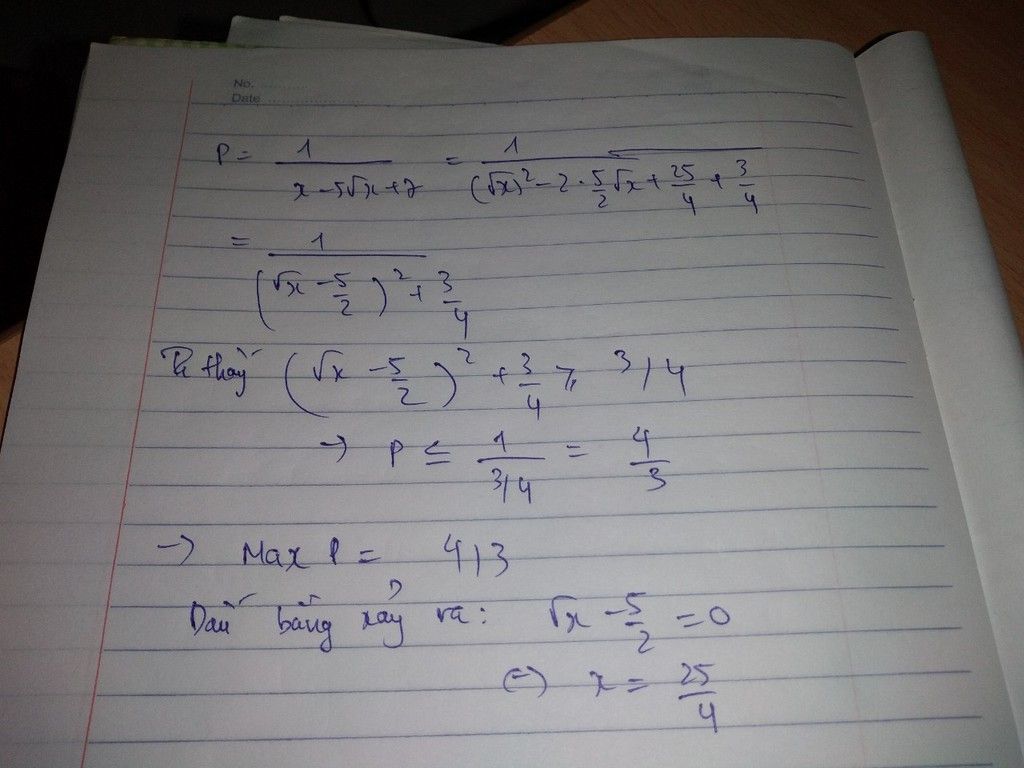 No. ............
Date ........................
P = 1/(x - 5√x + 7) = 1/((√x)² - 2 · 5/2 √x + 25/4 + 3/4)
= 1/((√x - 5/2)² + 3/4)
Ta thấy (√x - 5/2)² + 3/4 ≥ 3/4
→ P ≤ 1/(3/4) = 4/3
→ Max P = 4/3
Dấu bằng xảy ra: √x - 5/2 = 0
(=) x = 25/4